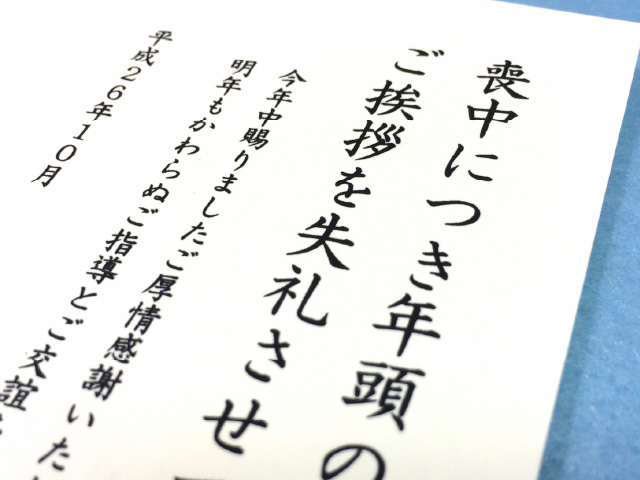 喪中につき年頭の
ご挨拶を失礼させ
今年中賜りましたご厚情感謝いた
明年もかわらぬご指導とご交誼
平成26年10月